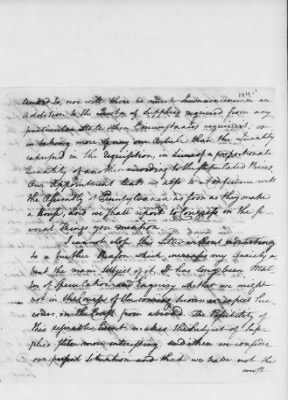 184
amied to, nor will there be much Inconvenience in an
Addition to the Quota of Supplies required from any
particular State when Circumstances require it, or
in taking more of any one Article than the Quantity
expressed in the Requisition, in Lieu of a proportionate
Quantity of another according to the stipulated Prices.
Our Appointment leads us also to a Conference with
the Assembly of Pennsylvania as soon as they make
a House, and we shall report to Congress on the se
veral Things you mention.
I cannot close this Letter without adverting
to a further Reason which increases my Anxiety a
bout the main Subject of it. It has long been that
of Speculation and Enquiry whether we might
not in the Course of the coming Season expect Suc
cours in the Troops from abroad. The Possibility of
this agreeable Event makes the Subject of Sup
plies still more interesting and when we consider
our present Situation and that we have not the
most